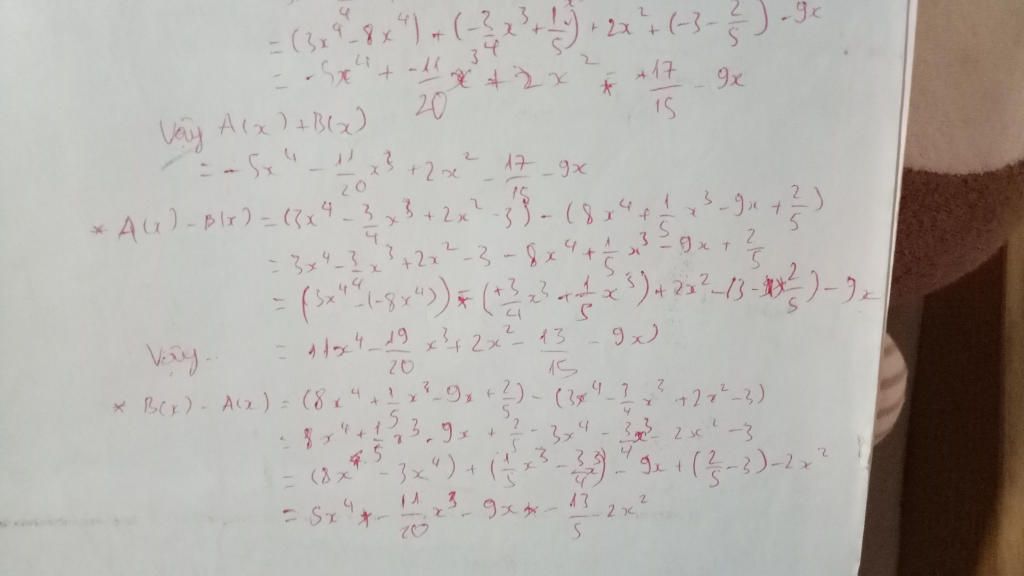 = (3x⁴ - 8x⁴) + (-3/4x³ + 1/5) + 2x² + (-3 - 2/5) - 9x
= -5x⁴ + -11/20 x³ + 2x² - 17/15 - 9x
Vậy A(x) + B(x)
= -5x⁴ - 11/20x³ + 2x² - 17/15 - 9x
* A(x) - B(x) = (3x⁴ - 3/4x³ + 2x² - 3) - (8x⁴ + 1/5x³ - 9x + 2/5)
= 3x⁴ - 3/4x³ + 2x² - 3 - 8x⁴ + 1/5x³ - 9x + 2/5
= (3x⁴ - (-8x⁴)) - (+3/4x³ + 1/5x³) + 2x² - (3 - 2/5) - 9x
Vậy = 11x⁴ - 19/20x³ + 2x² - 13/15 - 9x)
* B(x) - A(x) = (8x⁴ + 1/5x³ - 9x + 2/5) - (3x⁴ - 3/4x³ + 2x² - 3)
= 8x⁴ + 1/5x³ - 9x + 2/5 - 3x⁴ - 3/4x³ - 2x² - 3
= (8x⁴ - 3x⁴) + (1/5x³ - 3/4x³) - 9x + (2/5 - 3) - 2x²
= 5x⁴ - 11/20x³ - 9x - 13/5 - 2x²